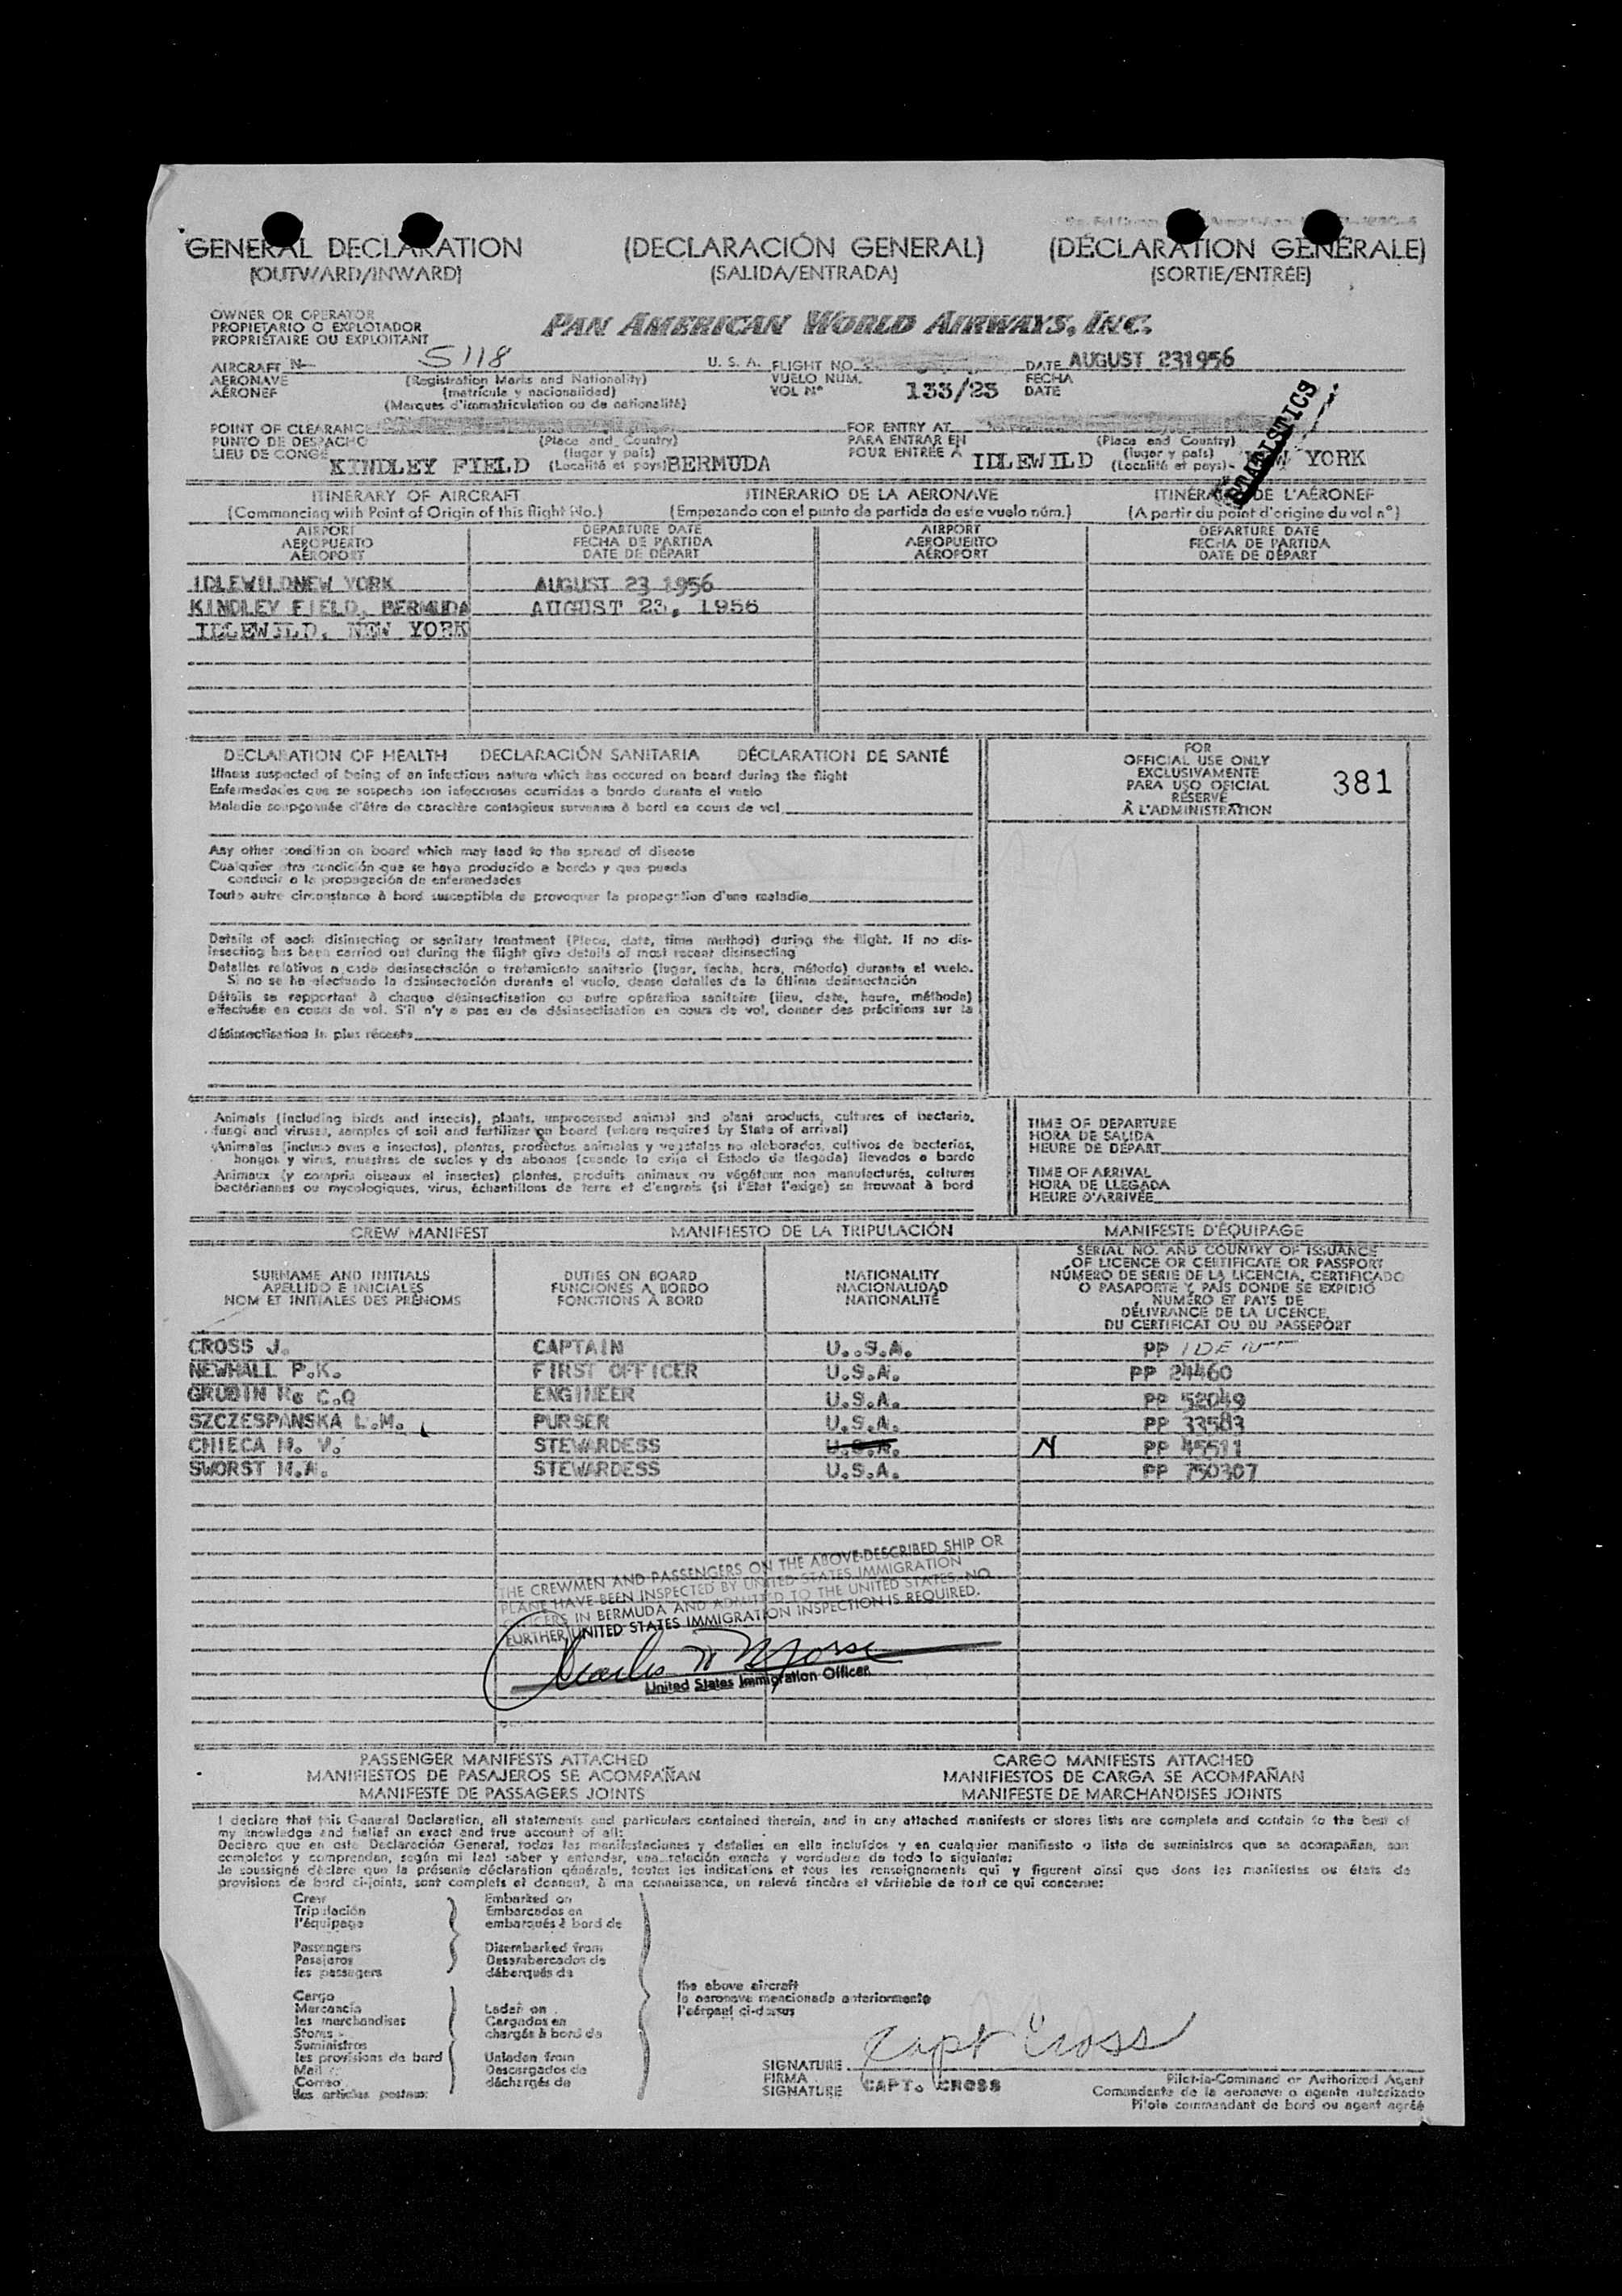 GENERAL DECLARATION (DECLARACIÓN GENERAL) (DÉCLARATION GÉNÉRALE)
(OUTWARD/INWARD) (SALIDA/ENTRADA) (SORTIE/ENTRÉE)
OWNER OR OPERATOR
PROPIETARIO O EXPLOTADOR
PROPRIÉTAIRE OU EXPLOITANT
PAN AMERICAN WORLD AIRWAYS, INC.
AIRCRAFT N- 5118 U. S. A. FLIGHT NO. DATE AUGUST 231956
AERONAVE (Registration Marks and Nationality) VUELO NUM. FECHA
AÉRONEF (matrícula y nacionalidad) VOL Nº 133/23 DATE
(Marques d'immatriculation ou de nationalité)
STATISTICS
POINT OF CLEARANCE FOR ENTRY AT
PUNTO DE DESPACHO (Place and Country) PARA ENTRAR EN (Place and Country)
LIEU DE CONGÉ KINDLEY FIELD (lugar y país) (Localité et pays) BERMUDA POUR ENTRÉE A IDLEWILD (lugar y país) (Localité et pays) NEW YORK
ITINERARY OF AIRCRAFT ITINERARIO DE LA AERONAVE ITINÉRAIRE DE L'AÉRONEF
(Commencing with Point of Origin of this flight No.) (Empezando con el punto de partida de este vuelo núm.) (A partir du point d'origine du vol nº)
AIRPORT DEPARTURE DATE AIRPORT DEPARTURE DATE
AEROPUERTO FECHA DE PARTIDA AEROPUERTO FECHA DE PARTIDA
AÉROPORT DATE DE DÉPART AÉROPORT DATE DE DÉPART
IDLEWILDNEW YORK AUGUST 23 1956
KINDLEY FIELD, BERMUDA AUGUST 23, 1956
IDLEWILD, NEW YORK
DECLARATION OF HEALTH DECLARACIÓN SANITARIA DÉCLARATION DE SANTÉ
Illness suspected of being of an infectious nature which has occured on board during the flight
Enfermedades que se sospecha son infecciosas ocurridas a bordo durante el vuelo
Maladie soupçonnée d'être de caractère contagieux survenue à bord en cours de vol
FOR
OFFICIAL USE ONLY
EXCLUSIVAMENTE
PARA USO OFICIAL
RÉSERVÉ
À L'ADMINISTRATION
381
Any other condition on board which may lead to the spread of disease
Cualquier otra condición que se haya producido a bordo y que pueda
conducir a la propagación de enfermedades
Toute autre circonstance à bord susceptible de provoquer la propagation d'une maladie
Details of each disinsecting or sanitary treatment (Place, date, time method) during the flight. If no dis-
insecting has been carried out during the flight give details of most recent disinsecting
Detalles relativos a cada desinsectación o tratamiento sanitario (lugar, fecha, hora, método) durante el vuelo.
Si no se ha efectuado la desinsectación durante el vuelo, dense detalles de la última desinsectación
Détails se rapportant à chaque désinsectisation ou autre opération sanitaire (lieu, date, heure, méthode)
effectuée en cours de vol. S'il n'y a pas eu de désinsectisation en cours de vol, donner des précisions sur la
désinsectisation la plus récente
Animals (including birds and insects), plants, unprocessed animal and plant products, cultures of bacteria,
fungi and viruses, samples of soil and fertilizer on board (where required by State of arrival)
Animales (incluso aves e insectos), plantas, productos animales y vegetales no elaborados, cultivos de bacterias,
hongos y virus, muestras de suelos y de abonos (cuando lo exija el Estado de llegada) llevados a bordo
Animaux (y compris oiseaux et insectes) plantes, produits animaux ou végétaux non manufacturés, cultures
bactériennes ou mycologiques, virus, échantillons de terre et d'engrais (si l'Etat l'exige) se trouvant à bord
TIME OF DEPARTURE
HORA DE SALIDA
HEURE DE DÉPART
TIME OF ARRIVAL
HORA DE LLEGADA
HEURE D'ARRIVÉE
CREW MANIFEST MANIFIESTO DE LA TRIPULACIÓN MANIFESTE D'ÉQUIPAGE
SURNAME AND INITIALS
APELLIDO E INICIALES
NOM ET INITIALES DES PRÉNOMS
DUTIES ON BOARD
FUNCIONES A BORDO
FONCTIONS À BORD
NATIONALITY
NACIONALIDAD
NATIONALITÉ
SERIAL NO. AND COUNTRY OF ISSUANCE
OF LICENCE OR CERTIFICATE OR PASSPORT
NÚMERO DE SERIE DE LA LICENCIA, CERTIFICADO
O PASAPORTE Y PAÍS DONDE SE EXPIDIÓ
NUMÉRO ET PAYS DE
DÉLIVRANCE DE LA LICENCE,
DU CERTIFICAT OU DU PASSEPORT
CROSS J. CAPTAIN U..S.A. PP IDENT
NEWHALL P.K. FIRST OFFICER U.S.A. PP 24460
GRUDIN Rs C.Q ENGINEER U.S.A. PP 52049
SZCZESPANSKA L.M. PURSER U.S.A. PP 33583
CHIECA M. V. STEWARDESS U.S.A. N PP 45511
SWORST M.A. STEWARDESS U.S.A. PP 750307
THE CREWMEN AND PASSENGERS ON THE ABOVE-DESCRIBED SHIP OR
PLANE HAVE BEEN INSPECTED BY UNITED STATES IMMIGRATION
OFFICERS IN BERMUDA AND ADMITTED TO THE UNITED STATES. NO
FURTHER UNITED STATES IMMIGRATION INSPECTION IS REQUIRED.
Charles W Morse
United States Immigration Officer
PASSENGER MANIFESTS ATTACHED CARGO MANIFESTS ATTACHED
MANIFIESTOS DE PASAJEROS SE ACOMPAÑAN MANIFIESTOS DE CARGA SE ACOMPAÑAN
MANIFESTE DE PASSAGERS JOINTS MANIFESTE DE MARCHANDISES JOINTS
I declare that this General Declaration, all statements and particulars contained therein, and in any attached manifests or stores lists are complete and contain to the best of
my knowledge and belief an exact and true account of all:
Declaro que en esta Declaración General, todas las manifestaciones y detalles en ella incluídos y en cualquier manifiesto o lista de suministros que se acompañan, son
completos y comprenden, según mi leal saber y entender, una relación exacta y verdadera de todo lo siguiente:
Je soussigné déclare que la présente déclaration générale, toutes les indications et tous les renseignements qui y figurent ainsi que dans les manifestes ou états de
provisions de bord ci-joints, sont complets et donnent, à ma connaissance, un relevé sincère et véritable de tout ce qui concerne:
Crew Embarked on
Tripulación Embarcados en
l'équipage embarqués à bord de
Passengers Disembarked from
Pasajeros Desembarcados de
les passagers débarqués de
the above aircraft
la aeronave mencionada anteriormente
l'aéronef ci-dessus
Cargo
Mercancía Laden on
les marchandises Cargados en
Stores chargés à bord de
Suministros
les provisions de bord Unladen from
Mail Descargados de
Correo déchargés de
les articles postaux
Capt Cross
SIGNATURE
FIRMA
SIGNATURE CAPT. CROSS
Pilot-in-Command or Authorized Agent
Comandante de la aeronave o agente autorizado
Pilote commandant de bord ou agent agréé